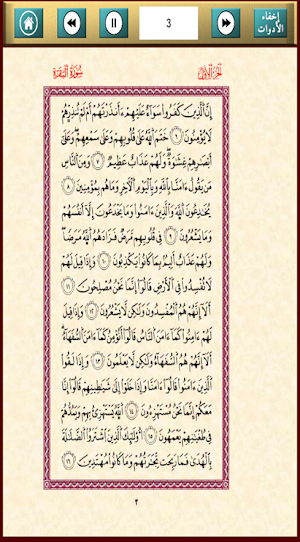 إخفاء
الأدوات
3
الجزء الأول
سورة البقرة
إِنَّ ٱلَّذِينَ كَفَرُوا۟ سَوَآءٌ عَلَيْهِمْ ءَأَنذَرْتَهُمْ أَمْ لَمْ تُنذِرْهُمْ
لَا يُؤْمِنُونَ ٦ خَتَمَ ٱللَّهُ عَلَىٰ قُلُوبِهِمْ وَعَلَىٰ سَمْعِهِمْ وَعَلَىٰٓ
أَبْصَٰرِهِمْ غِشَٰوَةٌ وَلَهُمْ عَذَابٌ عَظِيمٌ ٧ وَمِنَ ٱلنَّاسِ
مَن يَقُولُ ءَامَنَّا بِٱللَّهِ وَبِٱلْيَوْمِ ٱلْءَاخِرِ وَمَا هُم بِمُؤْمِنِينَ ٨
يُخَٰدِعُونَ ٱللَّهَ وَٱلَّذِينَ ءَامَنُوا۟ وَمَا يَخْدَعُونَ إِلَّآ أَنفُسَهُمْ
وَمَا يَشْعُرُونَ ٩ فِى قُلُوبِهِم مَّرَضٌ فَزَادَهُمُ ٱللَّهُ مَرَضًا
وَلَهُمْ عَذَابٌ أَلِيمٌۢ بِمَا كَانُوا۟ يَكْذِبُونَ ١٠ وَإِذَا قِيلَ لَهُمْ
لَا تُفْسِدُوا۟ فِى ٱلْأَرْضِ قَالُوٓا۟ إِنَّمَا نَحْنُ مُصْلِحُونَ ١١
أَلَآ إِنَّهُمْ هُمُ ٱلْمُفْسِدُونَ وَلَٰكِن لَّا يَشْعُرُونَ ١٢ وَإِذَا قِيلَ
لَهُمْ ءَامِنُوا۟ كَمَآ ءَامَنَ ٱلنَّاسُ قَالُوٓا۟ أَنُؤْمِنُ كَمَآ ءَامَنَ ٱلسُّفَهَآءُ
أَلَآ إِنَّهُمْ هُمُ ٱلسُّفَهَآءُ وَلَٰكِن لَّا يَعْلَمُونَ ١٣ وَإِذَا لَقُوا۟
ٱلَّذِينَ ءَامَنُوا۟ قَالُوٓا۟ ءَامَنَّا وَإِذَا خَلَوْا۟ إِلَىٰ شَيَٰطِينِهِمْ قَالُوٓا۟ إِنَّا
مَعَكُمْ إِنَّمَا نَحْنُ مُسْتَهْزِءُونَ ١٤ ٱللَّهُ يَسْتَهْزِئُ بِهِمْ وَيَمُدُّهُمْ
فِى طُغْيَٰنِهِمْ يَعْمَهُونَ ١٥ أُو۟لَٰٓئِكَ ٱلَّذِينَ ٱشْتَرَوُا۟ ٱلضَّلَٰلَةَ
بِٱلْهُدَىٰ فَمَا رَبِحَت تِّجَٰرَتُهُمْ وَمَا كَانُوا۟ مُهْتَدِينَ ١٦
٣